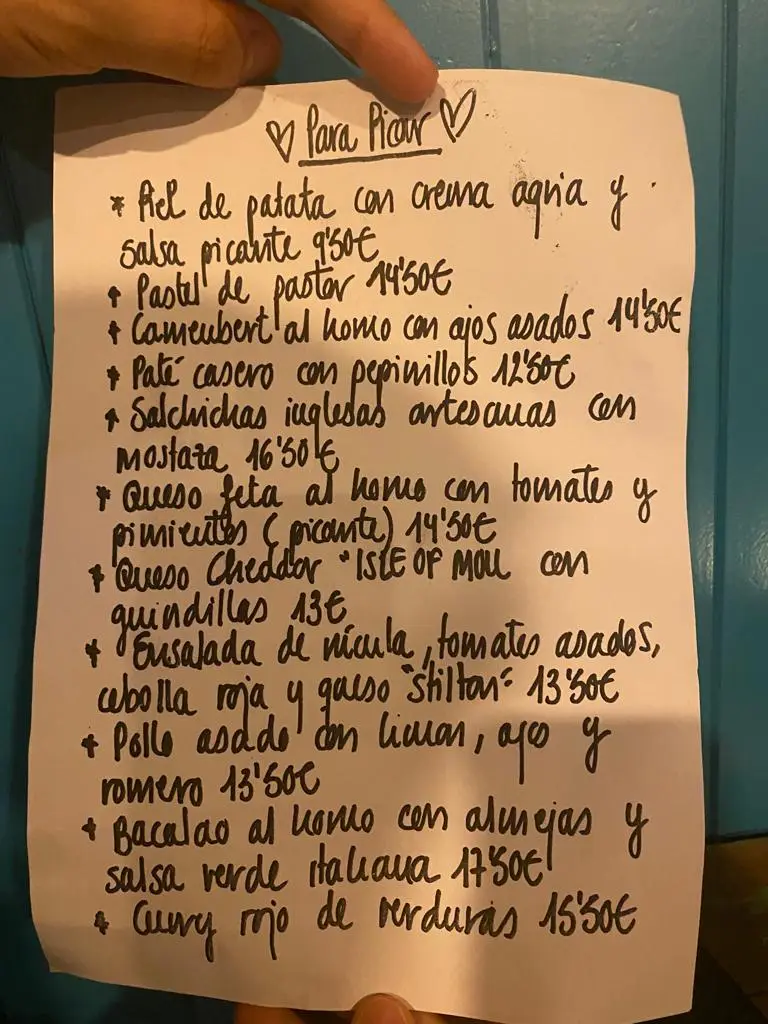 ♡ Para Picar ♡
* Piel de patata con crema agria y
salsa picante 9'50€
* Pastel de pastor 14'50€
* Camembert al horno con ajos asados 14'50€
* Paté casero con pepinillos 12'50€
* Salchichas inglesas artesanas con
mostaza 16'50€
* Queso feta al horno con tomates y
pimientos (picante) 14'50€
* Queso Cheddar "ISLE OF MULL con
guindillas 13€
* Ensalada de rúcula, tomates asados,
cebolla roja y queso "Stilton" 13'50€
* Pollo asado con limon, ajo y
romero 13'50€
* Bacalao al horno con almejas y
salsa verde italiana 17'50€
* Curry rojo de verduras 15'50€